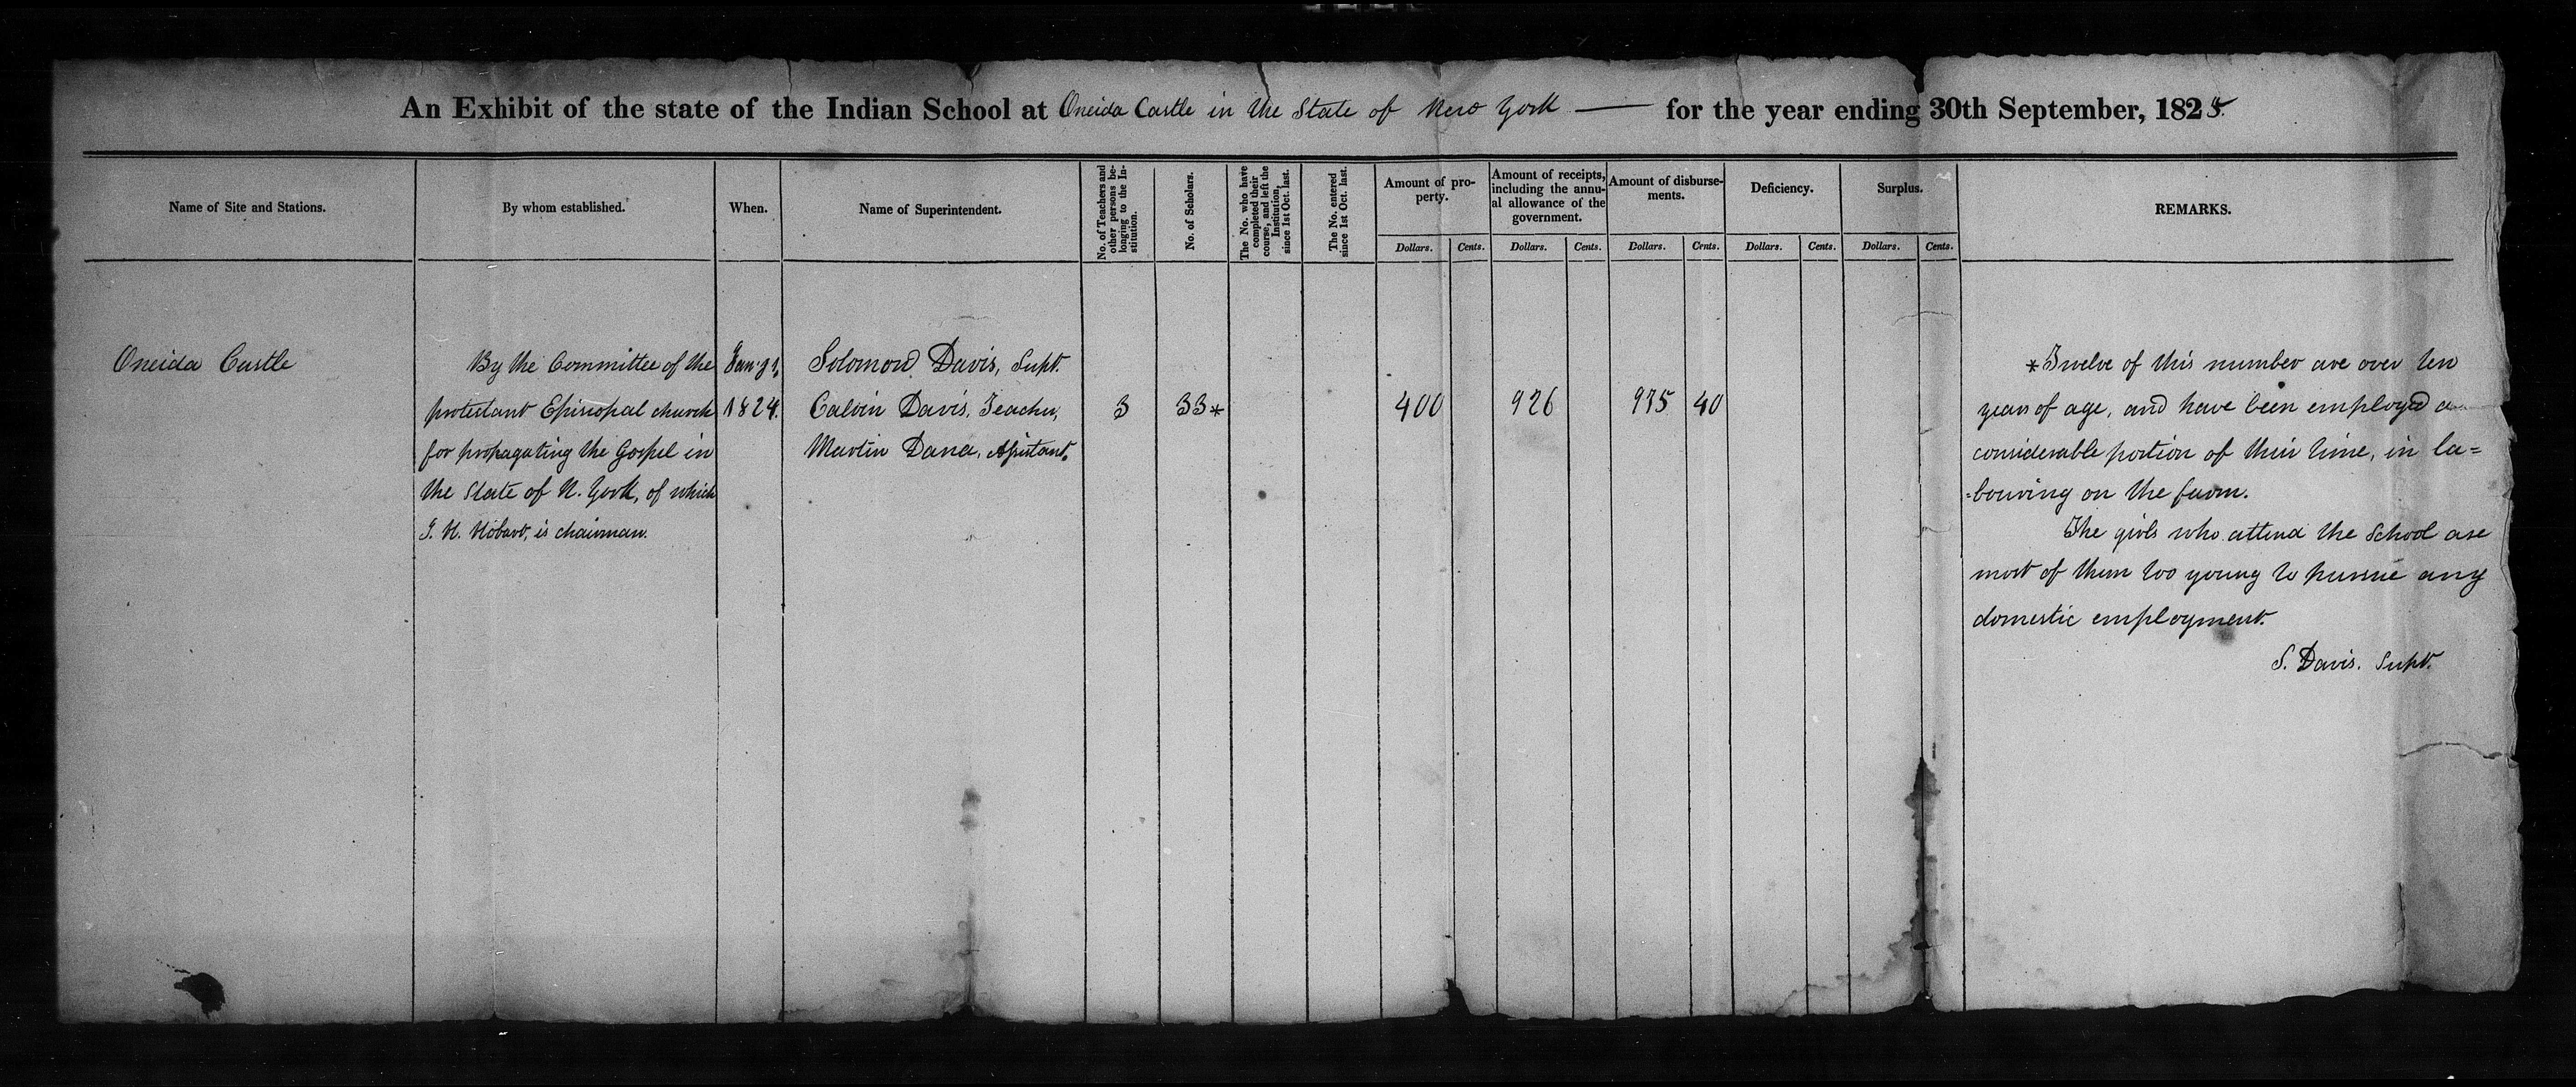 An Exhibit of the state of the Indian School at Oneida Castle in the State of New York — for the year ending 30th September, 1825.
Name of Site and Stations.
By whom established.
When.
Name of Superintendent.
No. of Teachers and
other persons be-
longing to the In-
stitution.
No. of Scholars.
The No. who have
completed their
course, and left the
Institution,
since 1st Oct. last.
The No. entered
since 1st Oct. last.
Amount of pro-
perty.
Dollars. Cents.
Amount of receipts,
including the annu-
al allowance of the
government.
Dollars. Cents.
Amount of disburse-
ments.
Dollars. Cents.
Deficiency.
Dollars. Cents.
Surplus.
Dollars. Cents.
REMARKS.
Oneida Castle
By the Committee of the
protestant Episcopal church
for propagating the Gospel in
the State of N. York, of which
J. H. Hobart, is chairman.
1824.
Solomon Davis, Supt.
Calvin Davis, Teacher,
Martin Dana, Assistant.
3
33*
400
926
975 40
*Twelve of this number are over ten
years of age, and have been employed a
considerable portion of their time, in la=
=bouring on the farm.
The girls who attend the School are
most of them too young to pursue any
domestic employment.
S. Davis. Supt.